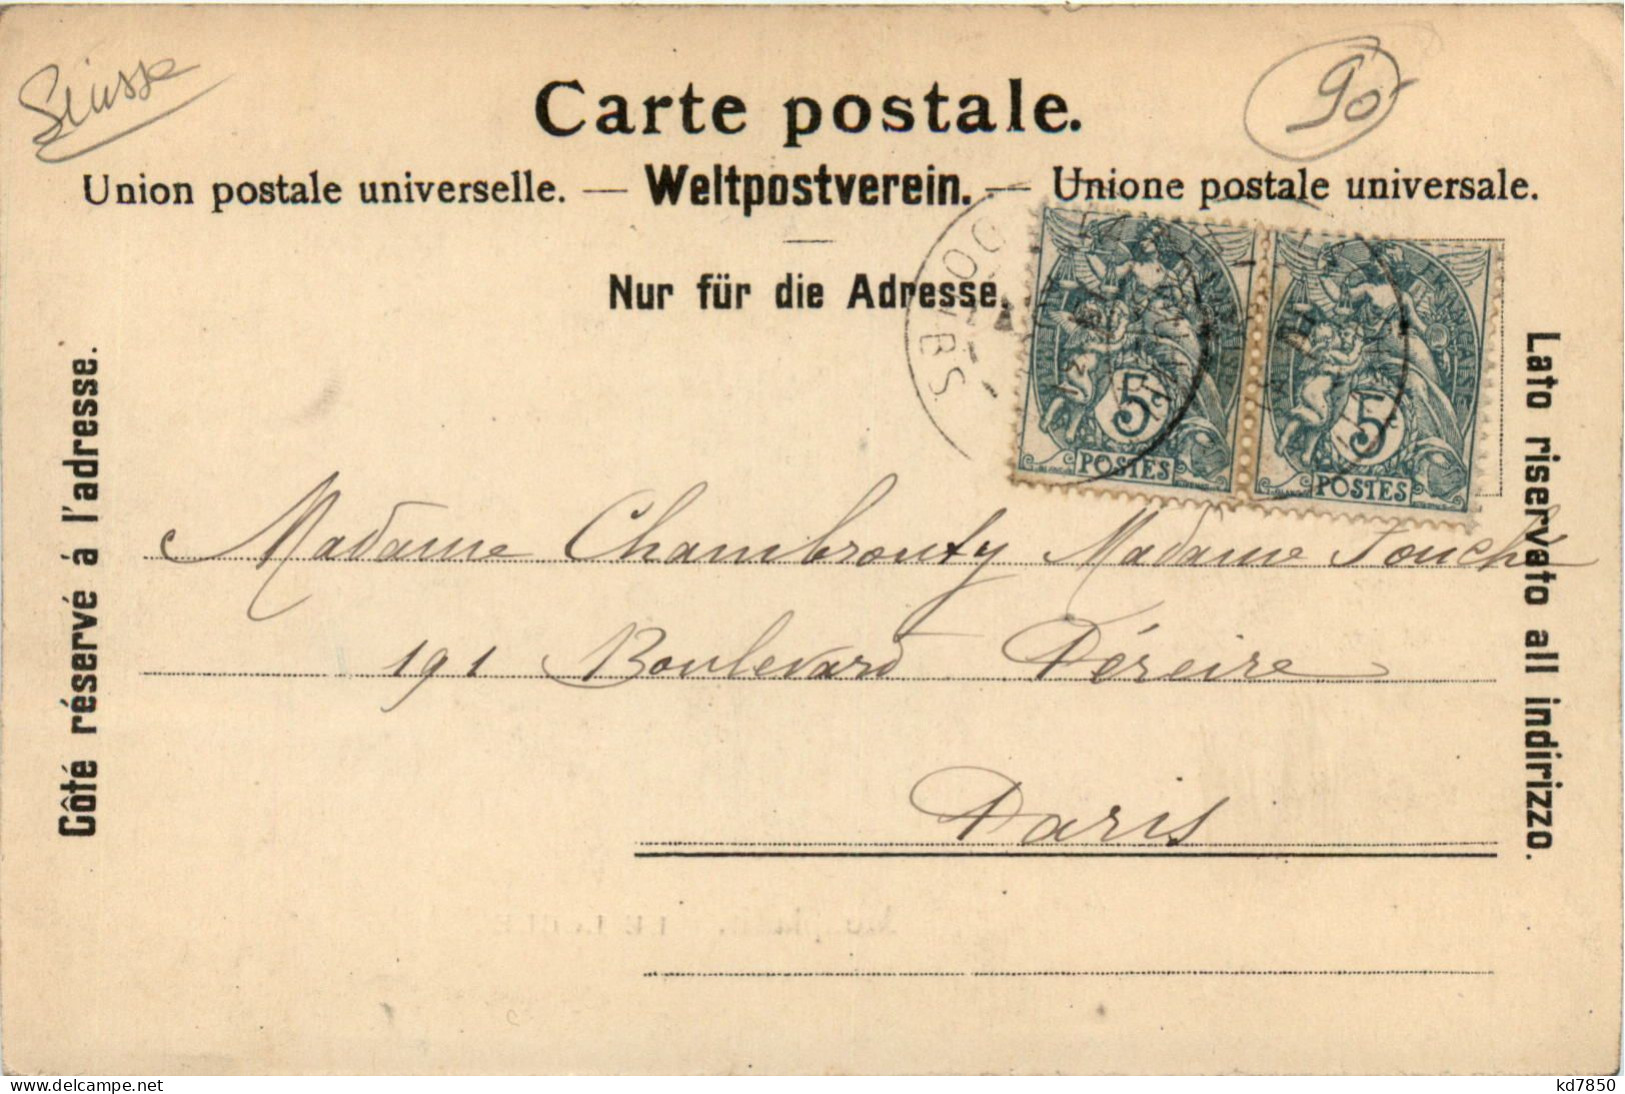 Suisse
90
Carte postale.
Union postale universelle. — Weltpostverein. — Unione postale universale.
Nur für die Adresse.
Côté réservé à l'adresse.
Lato riservato all indirizzo.
5 5
POSTES POSTES
Madame Chambrouty Madame Fouché
191 Boulevard Péreire
Paris
kd7850